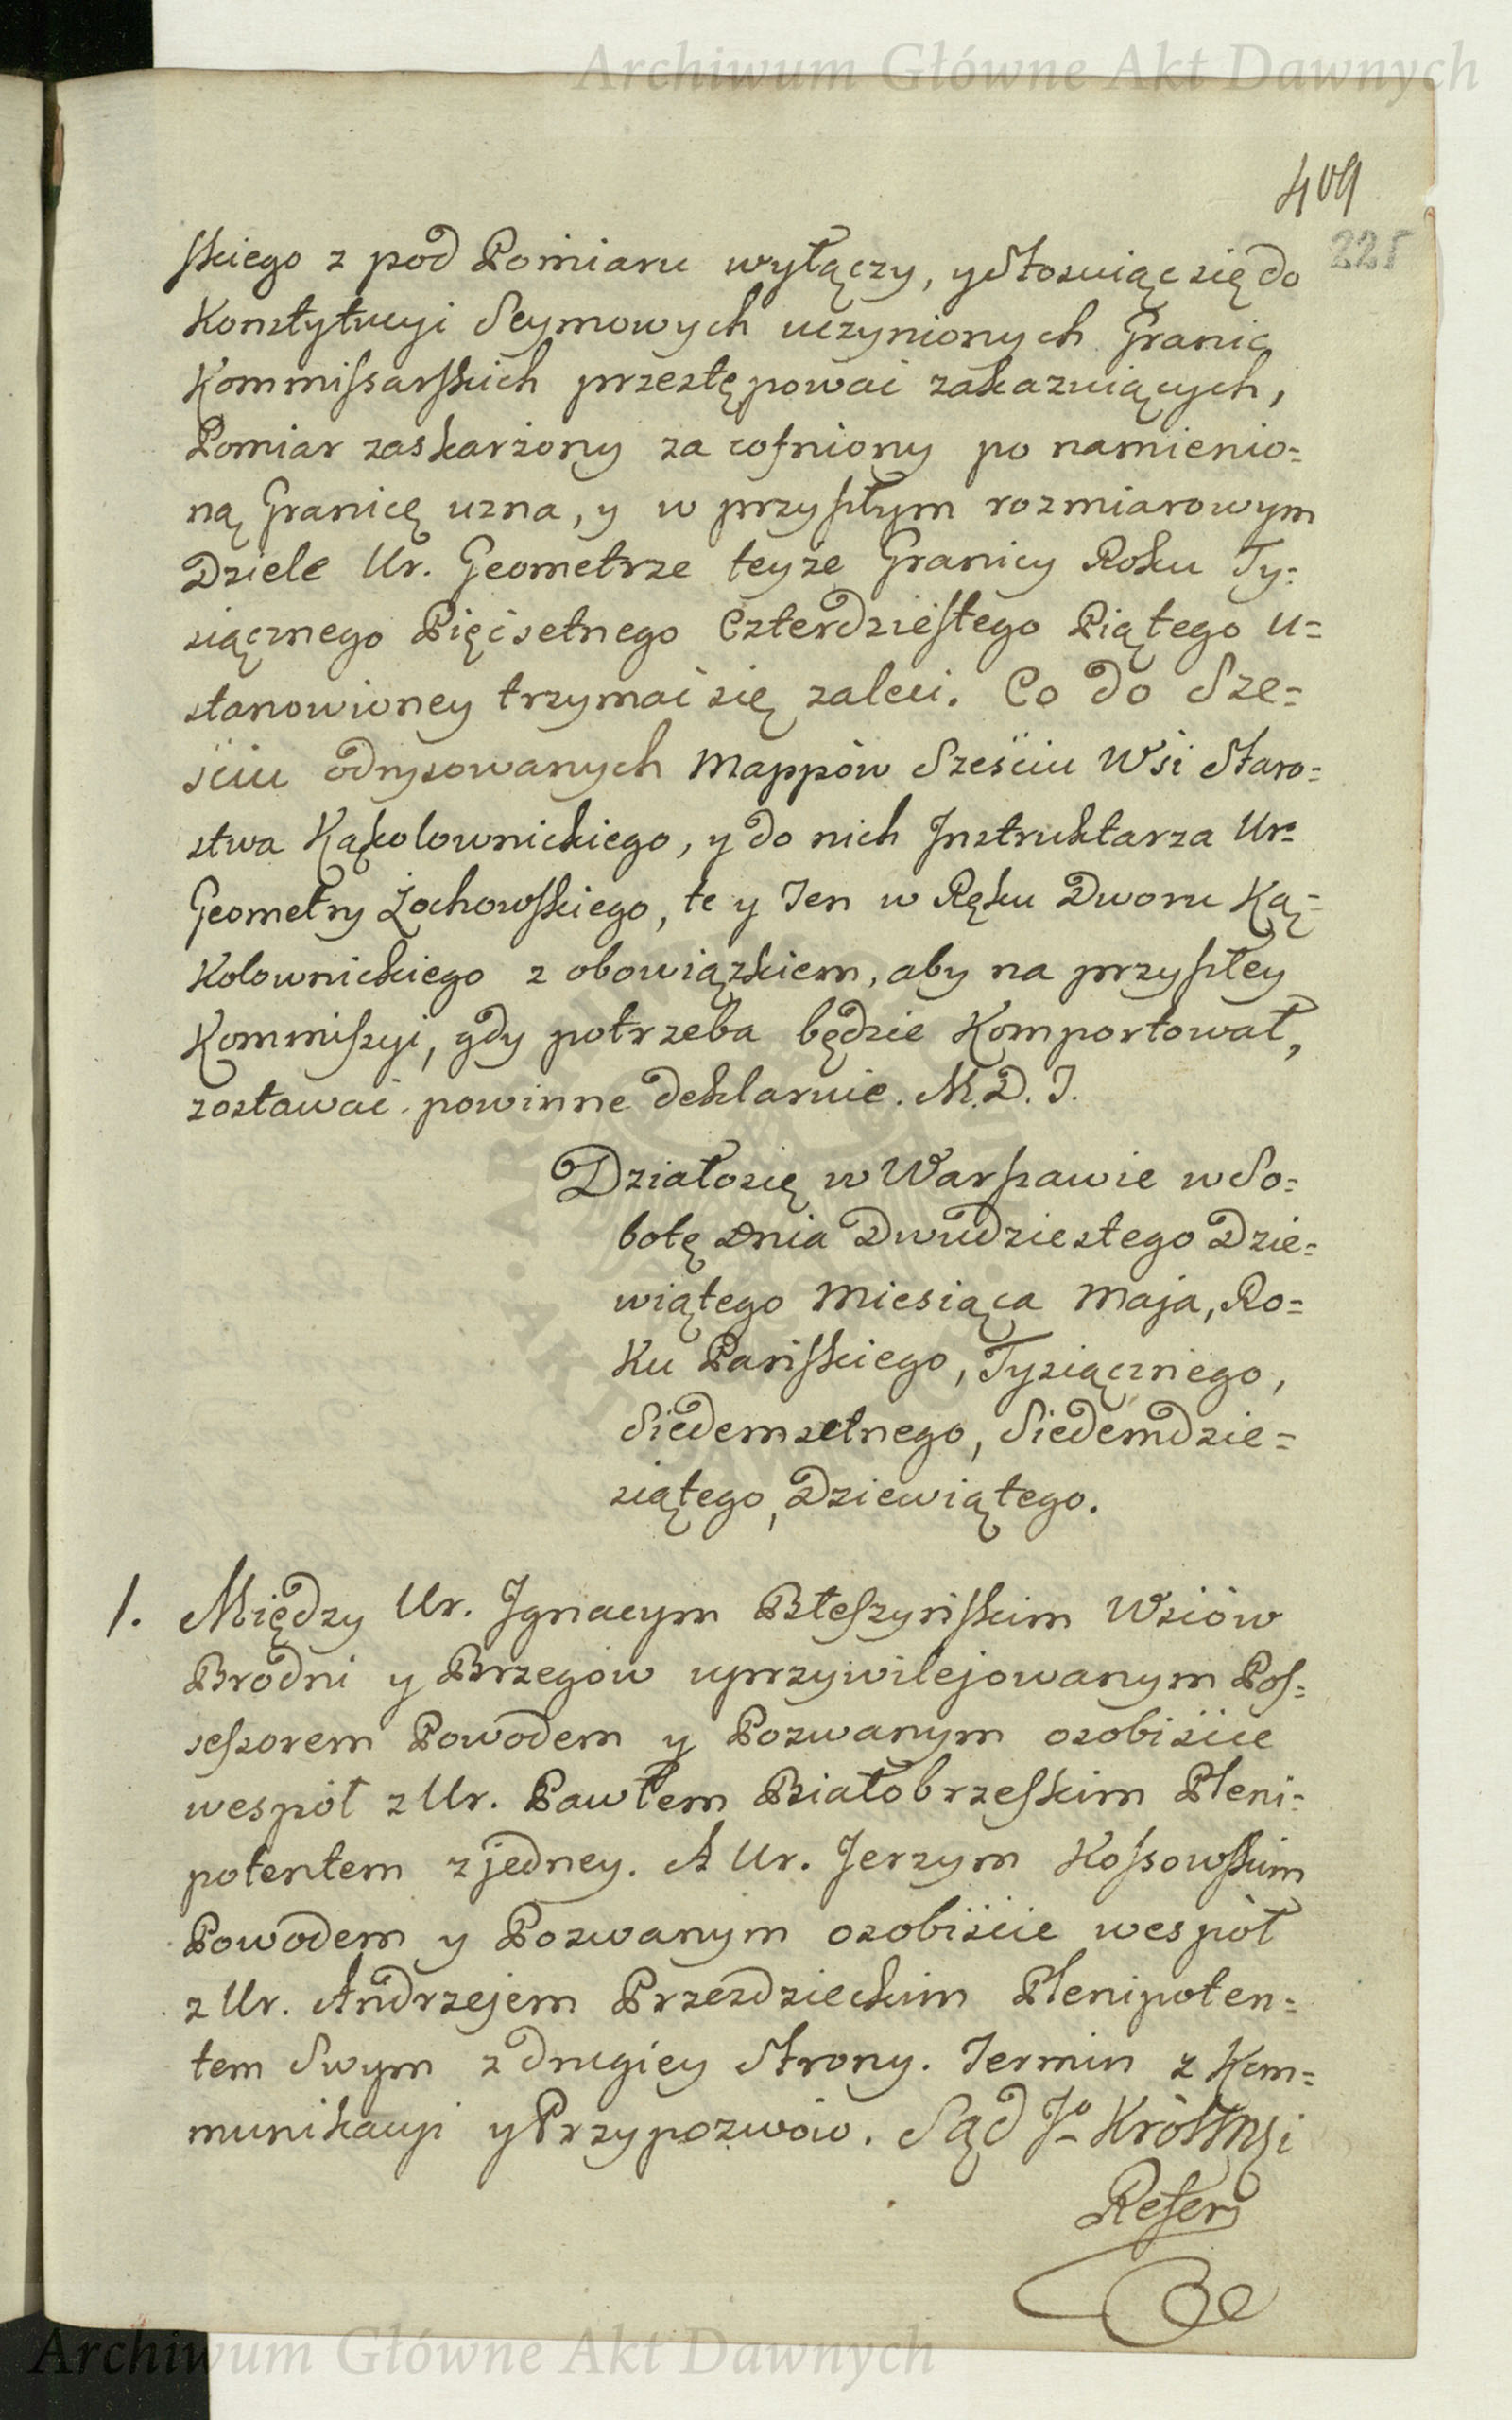 Archiwum Główne Akt Dawnych
409
225
skiego z pod Pomiaru wyłączy, y stosuiąc się do
Konstytucyi Seymowych uczynionych Granic
Kommissarskich przestępować zakazuiących,
Pomiar zaskarżony za cofniony po namienio=
ną Granicę uzna, y w przyszłym rozmiarowym
Dziele Ur. Geometrze teyże Granicy Roku Ty=
siącznego Pięćsetnego Czterdziestego Piątego u=
stanowioney trzymać się zaleci. Co do Sze=
ściu odrysowanych Mappów Sześciu Wsi Staro=
stwa Kąkolownickiego, y do nich Instruktarza Ur.
Geometry Żochowskiego, te y Ten w Ręku Dworu Ką=
kolownickiego z obowiązkiem, aby na przyszłey
Kommiszyi, gdy potrzeba będzie Komportował,
zostawać powinne deklaruie. M. D. I.
Działosię w Warszawie w So=
botę Dnia Dwudziestego Dzie=
wiątego Miesiąca Maja, Ro=
ku Pańskiego, Tysiącznego,
Siedemsetnego, Siedemdzie=
siątego, Dziewiątego.
1. Między Ur. Ignacym Błeszyńskim Wsiów
Brodni y Brzegów uprzywilejowanym Pos=
sessorem Powodem y Pozwanym osobiście
wespół z Ur. Pawłem Białobrzeskim Pleni=
potentem z jedney. A Ur. Jerzym Kossowskim
Powodem y Pozwanym osobiście wespół
z Ur. Andrzejem Przezdzieckim Plenipoten=
tem Swym z drugiey Strony. Termin z Kom=
munikacyi y Przypozwów. Sąd Jo KróMsci
Refer
Archiwum Główne Akt Dawnych